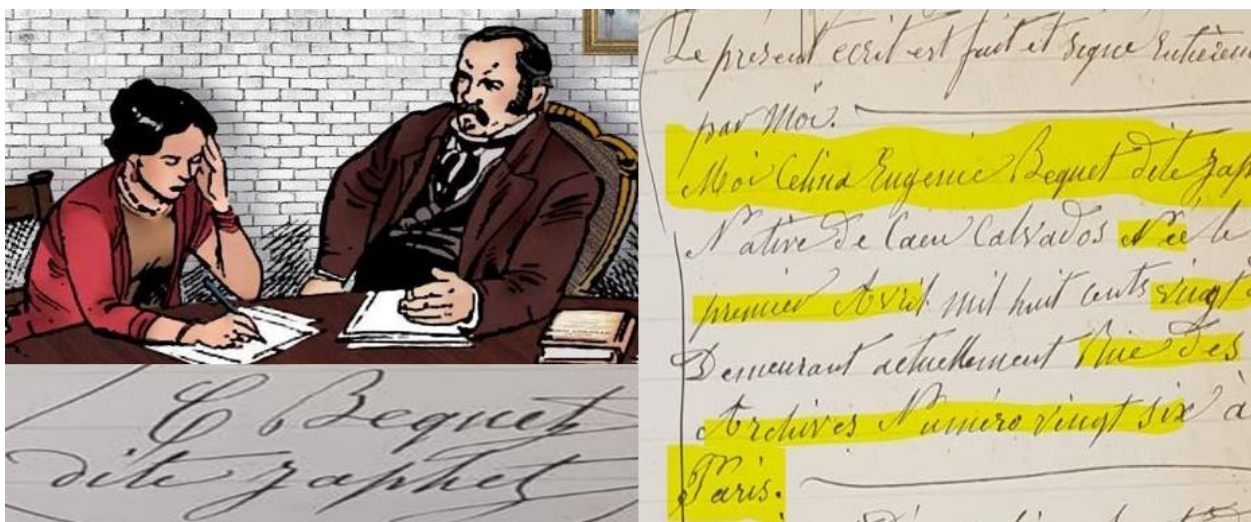 C Bequet
dite Japhet
Le présent ecrit est fait et signe Entièrem
par Moi.
Moi Celina Eugenie Bequet dite Japh
Native de Caen Calvados Née le
premier Avril mil huit cents vingt
Demeurant actuellement Rue des
Archives Numéro vingt six à
Paris.